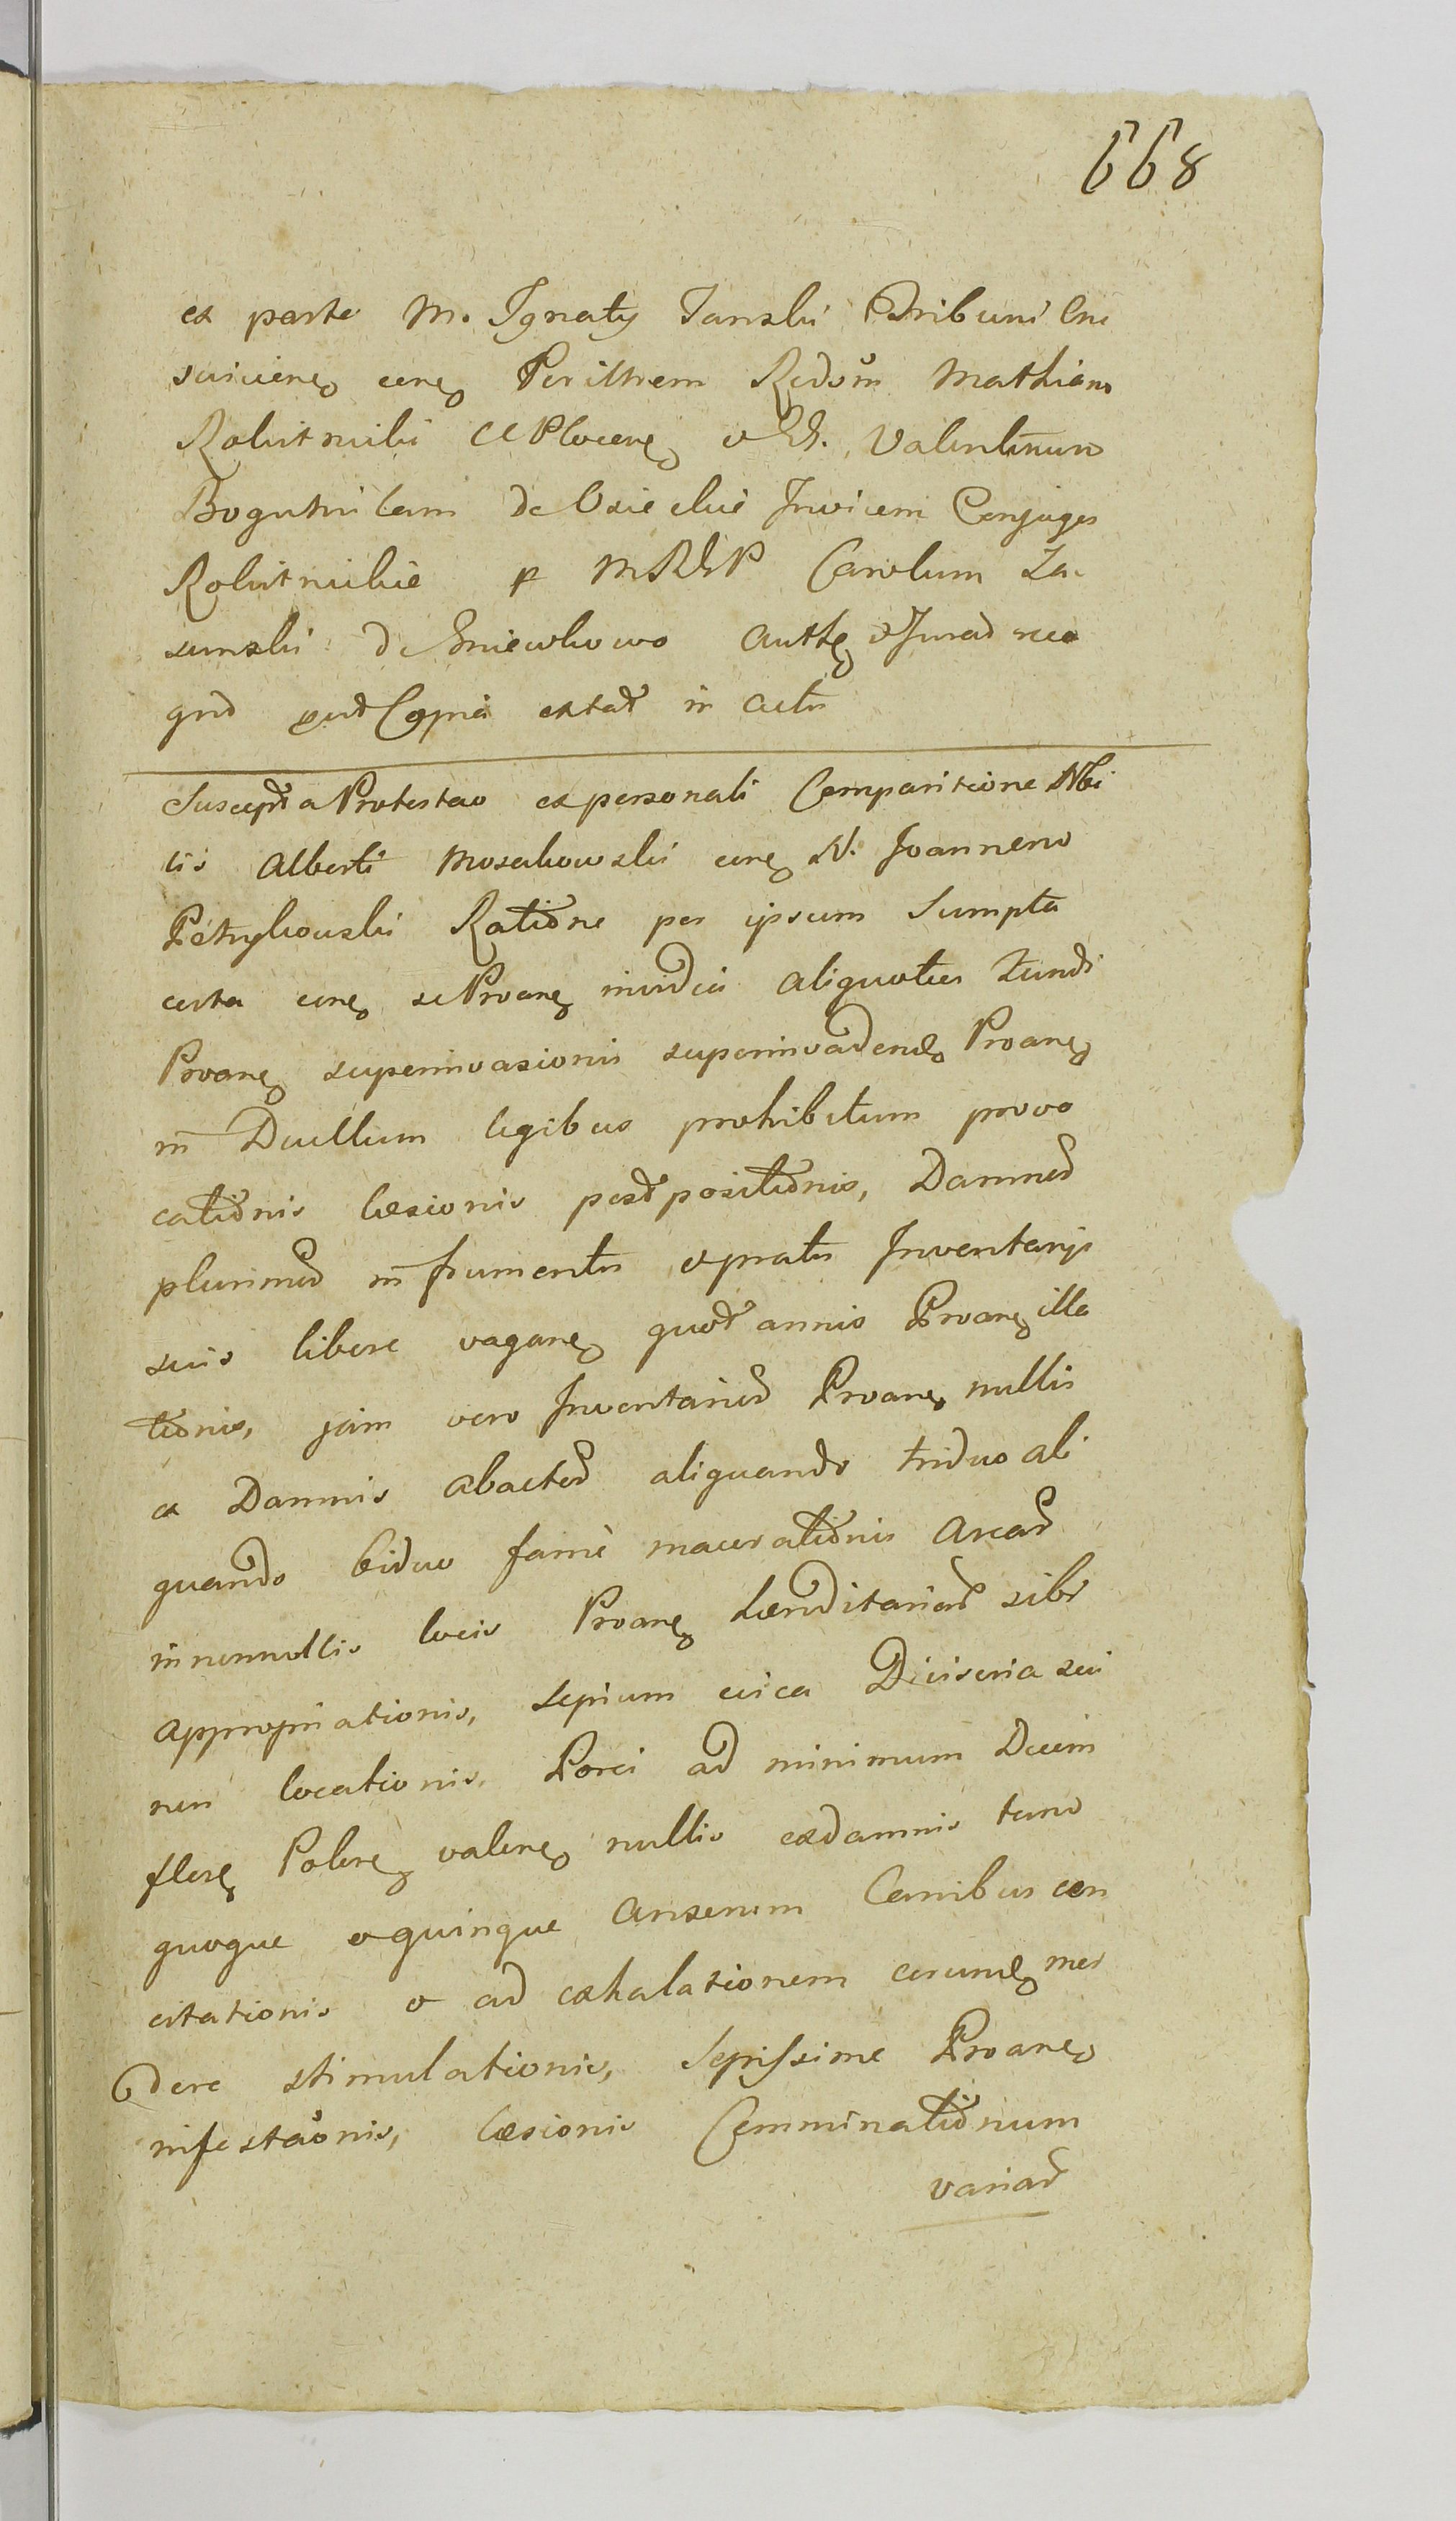 668
ex parte M. Ignaty Janski Tribuni Cru
suicien cen Perillrem Rndum Mathiam
Rokitnicki CCPlocen et M. Valentinum
Bogumilam de Osieckie Invicem Conjuges
Rokitnickie p MRDP Carolum Za
sunski de Gniewkowo Autthe et Jurad reco
gnd prod Copia extat in Actis
Suscepta Protestao ex personali Comparitione Nbi
lis Alberti Mosakowski cen N. Joannem
Petrykowski Ratione per ipsum Sumpta
certa cen se Proan inurdia aliquoties Fundi
Proan superinvasionis superinvadend Proan
in Duellum legibus prohibitum provo
cationis laesionis postpositionis, Damnod
plurimod in frumentis et pratis Inventarijs
suis libere vagan quot annis Proan illa
tionis, jam vero Inventariod Proan nullis
ex Damnis abactod aliquando triduo ali
quando biduo fame macerationis Aread
in nonnullis locis Proan haereditariad sibi
appropriationis, sepium circa Diviseria sui
non locationis, Porci ad minimum Decim
flor Polon valen nullis ex damnis tum
quoque et quinque Anserum Canibus con
citationis et ad exhalationem eorund mor
dere stimulationis, Sepissime Proan
infestaonis, laesionis Comminationum
variad